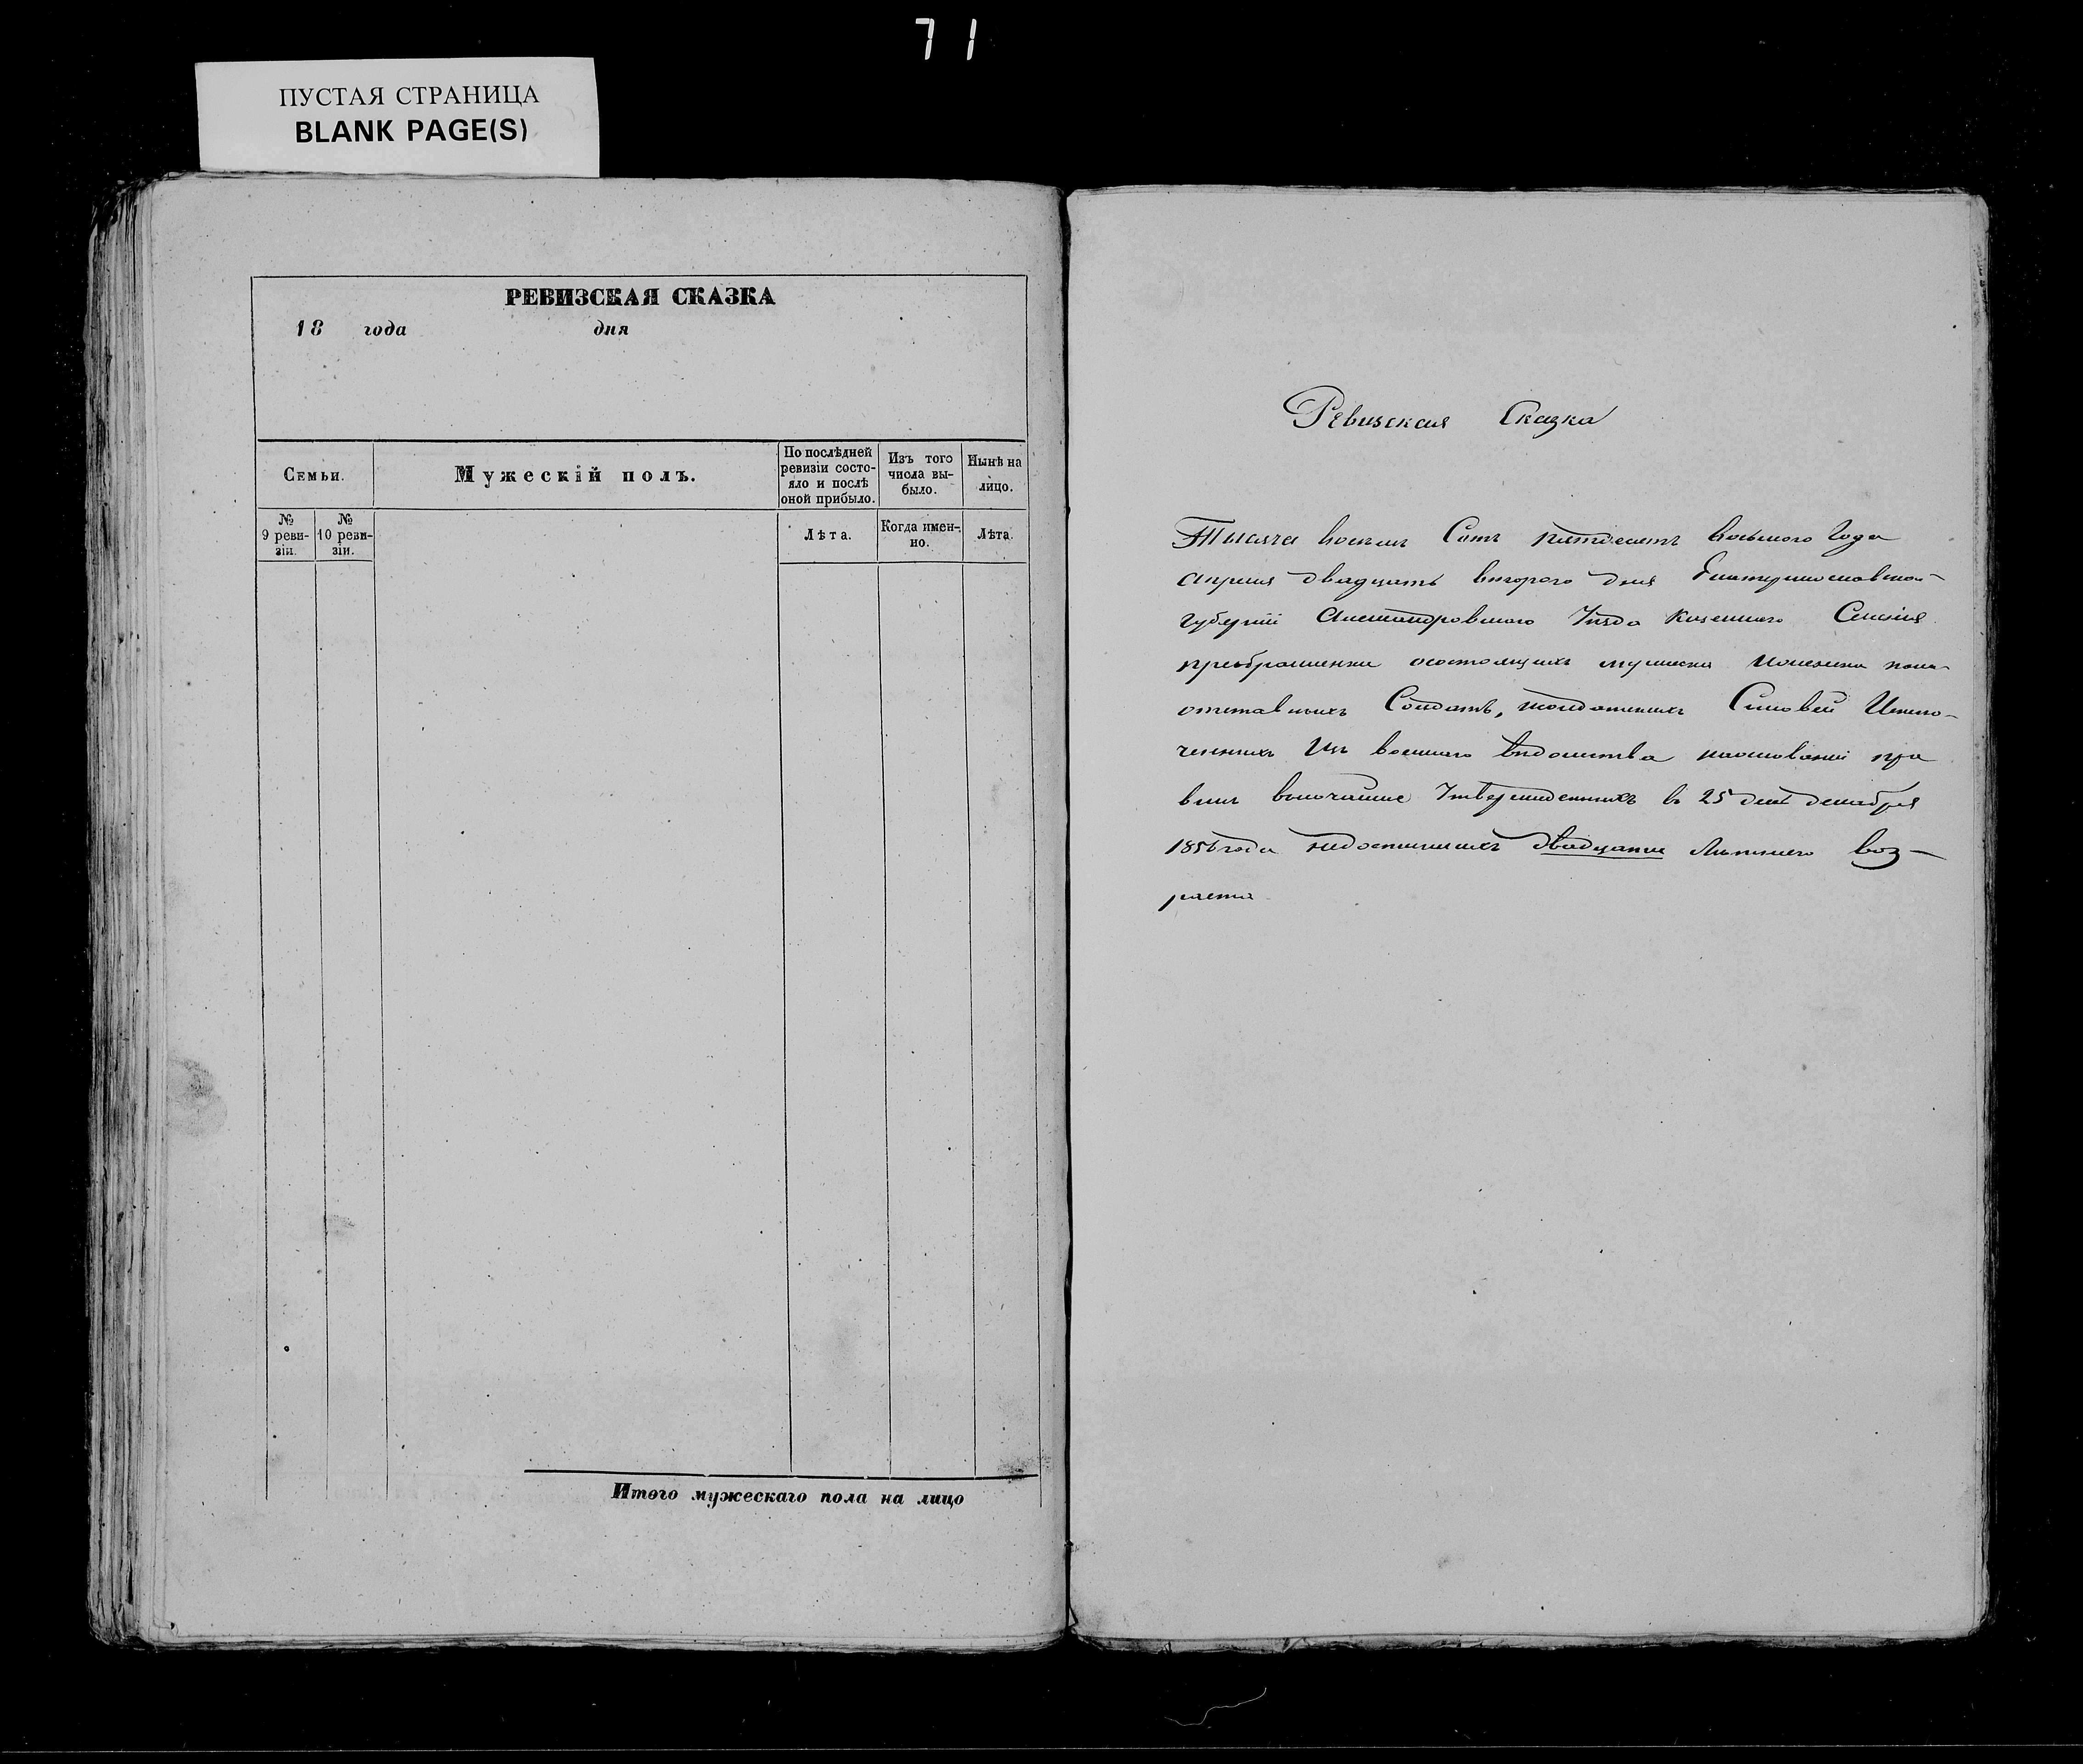 71
ПУСТАЯ СТРАНИЦА
BLANK PAGE(S)
РЕВИЗСКАЯ СКАЗКА
18 года дня
Семьи.
Мужескій полъ.
По послѣдней ревизіи состо-
яло и послѣ оной прибыло.
Изъ того числа вы-
было.
Нынѣ на лицо.
№ 9 реви-
зіи.
№ 10 реви-
зіи.
Лѣта.
Когда имен-
но.
Лѣта.
Итого мужескаго пола на лицо
Ревизская Сказка
Тысяча восемь Сотъ пятдесятъ восьмого Года
апреля двадцать второго дня Екатеринославской
губерніи Александровского Уѣзда Казенного Селенія
преображенки осостоящихъ мужеска
отставныхъ Солдатъ, солдатскихъ Синовей Исклю-
ченныхъ Изъ военного вѣдомства наоснованіи пра
вилъ высочайше Утвержденныхъ въ 25 день декабря
1856 года недостигшихъ двадцати Лѣтнего воз-
раста